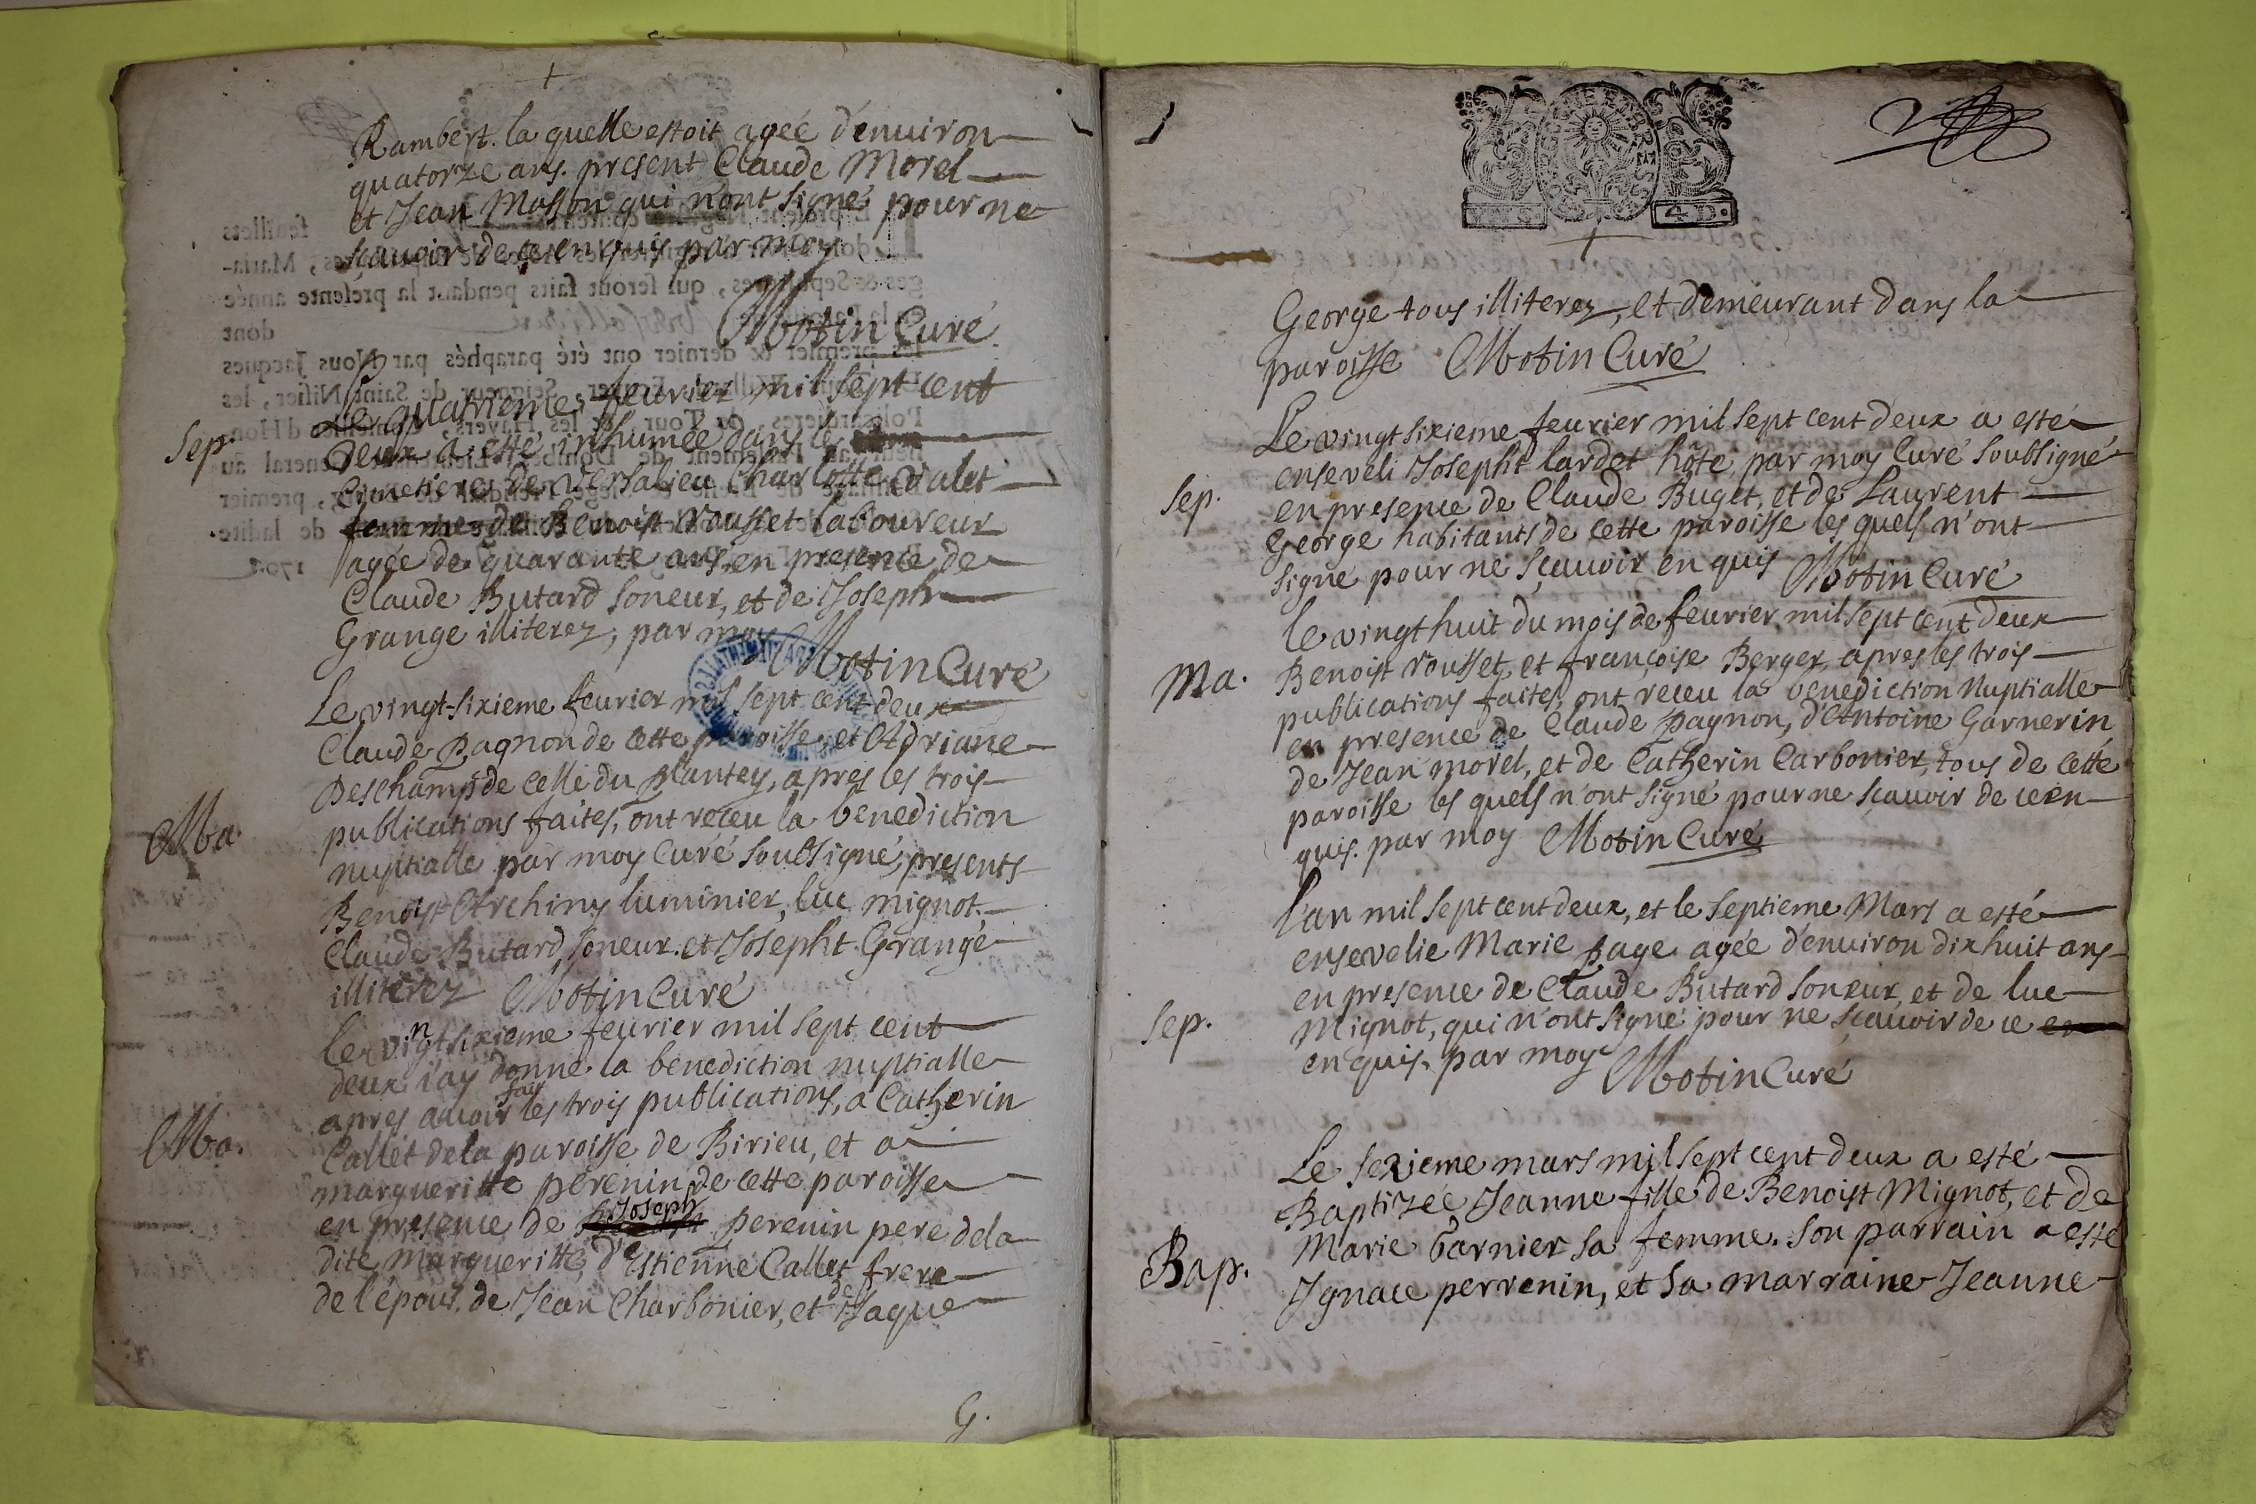 Rambert. la quelle estoit agée d'enuiron
quatorze ans. present Claude Morel
et Jean Masson qui n'ont signé pour ne
sçauoir de ce enquis par moy
Motin Curé
Sep.
Le quatrieme feurier mil sept cent
deux a esté inhumée dans le
Cimetiere de Versalieu Charlotte Valet
femme de Benoist rousset laboureur
agée de quarante ans, en presence de
Claude Butard soneur, et de Joseph
Grange illiterez, par moy
Motin Curé
Le vingt-sixieme feurier mil sept cent deux
Claude Pagnon de cette paroisse, et Adriane
Deschamps de celle du plantey, apres les trois
Ma
publications faites, ont receu la benediction
nuptialle par moy Curé soubsigné, presents
Benoist Archiny luminier, luc mignot
Claude Butard, soneur. et Josepht Grange
illiterez Motin Curé
Le vingt sixieme feurier mil sept cent
deux i'ay donné la benediction nuptialle
apres auoir fait les trois publications, a Catherin
Ma.
Callet de la paroisse de Birieu, et a
margueritte perenin de cette paroisse
en presence de Joseph perenin pere de la
dite margueritte, d'Estienne Callet frere
de l'épous, de Jean Charbonier, et de Jaque
G.
4 D.
George tous illiterez, et demeurant dans la
paroisse Motin Curé
Le vingt sixieme feurier mil sept cent deux a esté
enseveli Josepht lardet hôte, par moy Curé soubsigné
Sep.
en presence de Claude Buget, et de Laurent
George habitants de cette paroisse les quels n'ont
signé pour ne sçauoir enquis Motin Curé
le vingt huit du mois de feurier mil sept cent deux
Ma.
Benoist rousset, et françoise Berger, apres les trois
publications faites, ont receu la benediction Nuptialle
en presence de Claude pagnon, d'Antoine Garnerin
de Jean morel, et de Catherin Carbonier, tous de cette
paroisse les quels n'ont signé pour ne sçauoir de ce en
quis. par moy Motin Curé
l'an mil sept cent deux, et le septieme Mars a esté
ensevelie Marie page agée d'enuiron dix huit ans
en presence de Claude Butard soneur, et de luc
Sep.
Mignot, qui n'ont signé pour ne sçauoir de ce
enquis. par moy Motin Curé
Le sezieme mars mil sept cent deux a esté
Baptizée Jeanne fille de Benoist Mignot, et de
Marie Garnier sa femme. son parrain a esté
Bap.
Ignace perrenin, et sa marraine Jeanne